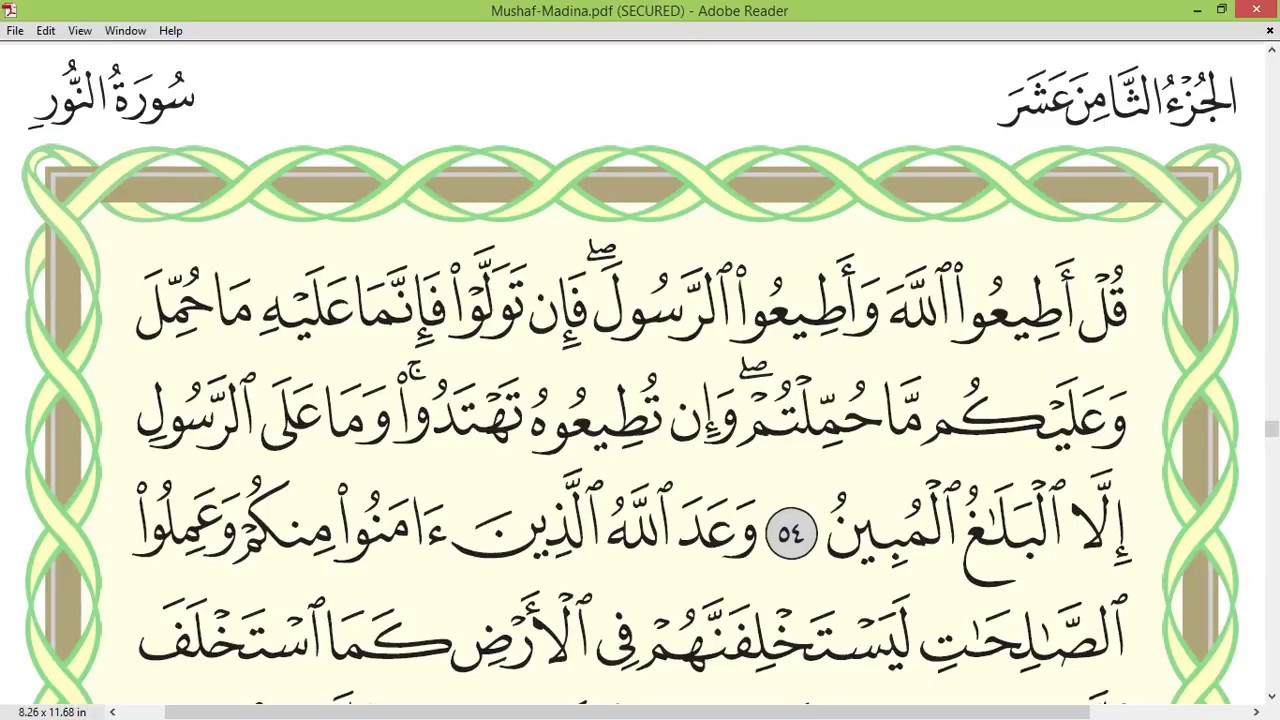 Mushaf-Madina.pdf (SECURED) - Adobe Reader
File Edit View Window Help
الجُزْءُ الثَّامِنَ عَشَرَ
سُورَةُ النُّورِ
قُلۡ أَطِيعُواْ ٱللَّهَ وَأَطِيعُواْ ٱلرَّسُولَۖ فَإِن تَوَلَّوۡاْ فَإِنَّمَا عَلَيۡهِ مَا حُمِّلَ
وَعَلَيۡكُم مَّا حُمِّلۡتُمۡۖ وَإِن تُطِيعُوهُ تَهۡتَدُواْۚ وَمَا عَلَى ٱلرَّسُولِ
إِلَّا ٱلۡبَلَٰغُ ٱلۡمُبِينُ ٥٤ وَعَدَ ٱللَّهُ ٱلَّذِينَ ءَامَنُواْ مِنكُمۡ وَعَمِلُواْ
ٱلصَّٰلِحَٰتِ لَيَسۡتَخۡلِفَنَّهُمۡ فِي ٱلۡأَرۡضِ كَمَا ٱسۡتَخۡلَفَ
8.26 x 11.68 in